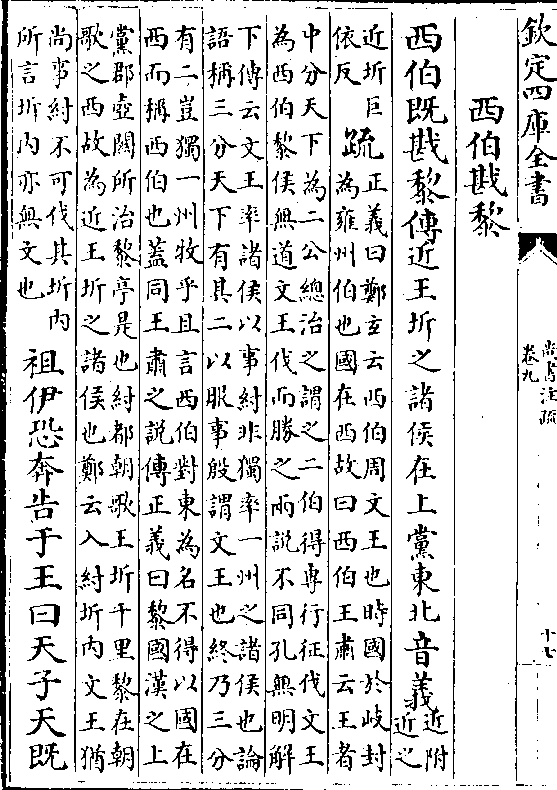 欽定四庫全書
尚書注疏
卷九
十七
西伯戡黎
西伯既戡黎傳近王圻之諸侯在上黨東北音義近附
近之
近圻巨
依反
疏
正義曰鄭玄云西伯周文王也時國於岐封
為雍州伯也國在西故曰西伯王肅云王者
中分天下為二公總治之謂之二伯得專行征伐文王
為西伯黎侯無道文王伐而勝之兩說不同孔無明解
下傳云文王率諸侯以事紂非獨率一州之諸侯也論
語稱三分天下有其二以服事殷謂文王也終乃三分
有二豈獨一州牧乎且言西伯對東為名不得以國在
西而稱西伯也蓋同王肅之說傳正義曰黎國漢之上
黨郡壺關所治黎亭是也紂都朝歌王圻千里黎在朝
歌之西故為近王圻之諸侯也鄭云入紂圻內文王猶
尚事紂不可伐其圻內
所言圻內亦無文也
祖伊恐奔告于王曰天子天既